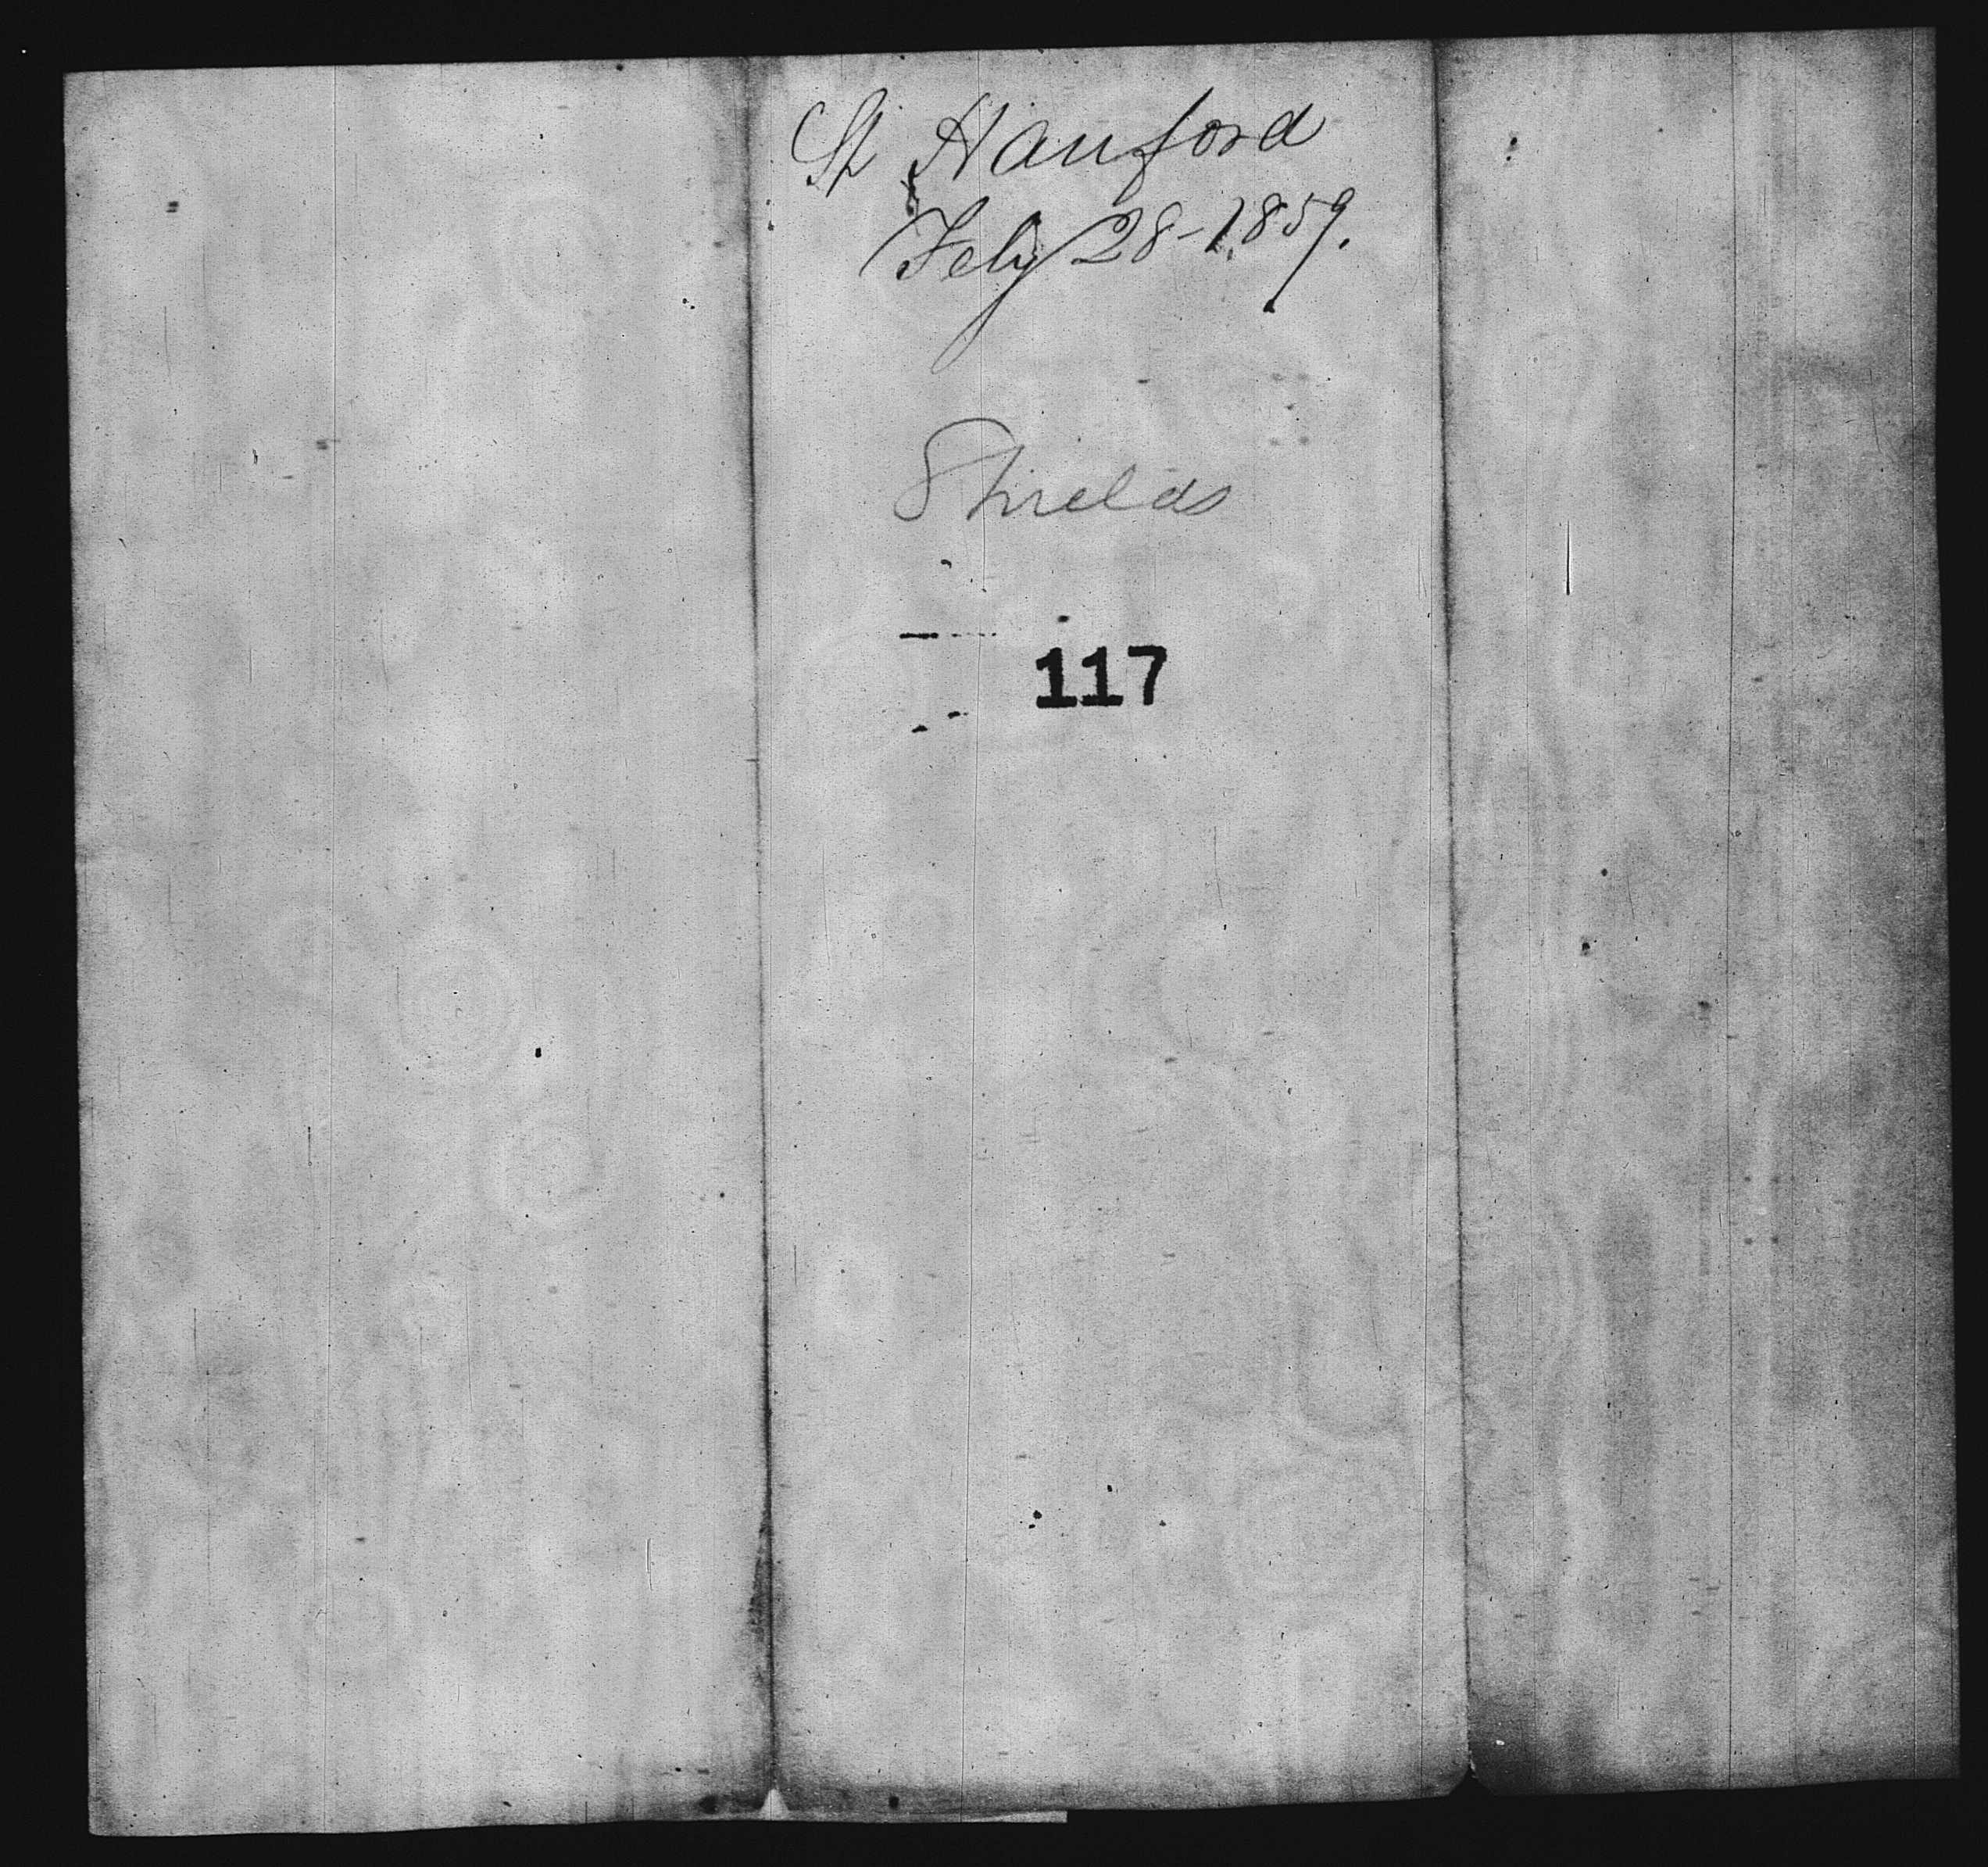 St Hanford
Feby 28-1859.
Shields
117